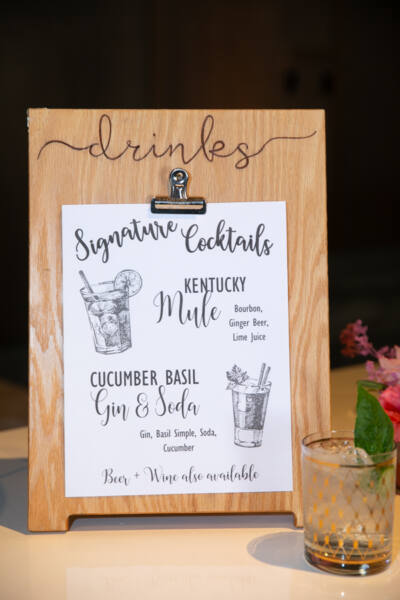 drinks
Signature Cocktails
KENTUCKY
Mule
Bourbon,
Ginger Beer,
Lime Juice
CUCUMBER BASIL
Gin & Soda
Gin, Basil Simple, Soda,
Cucumber
Beer + Wine also available